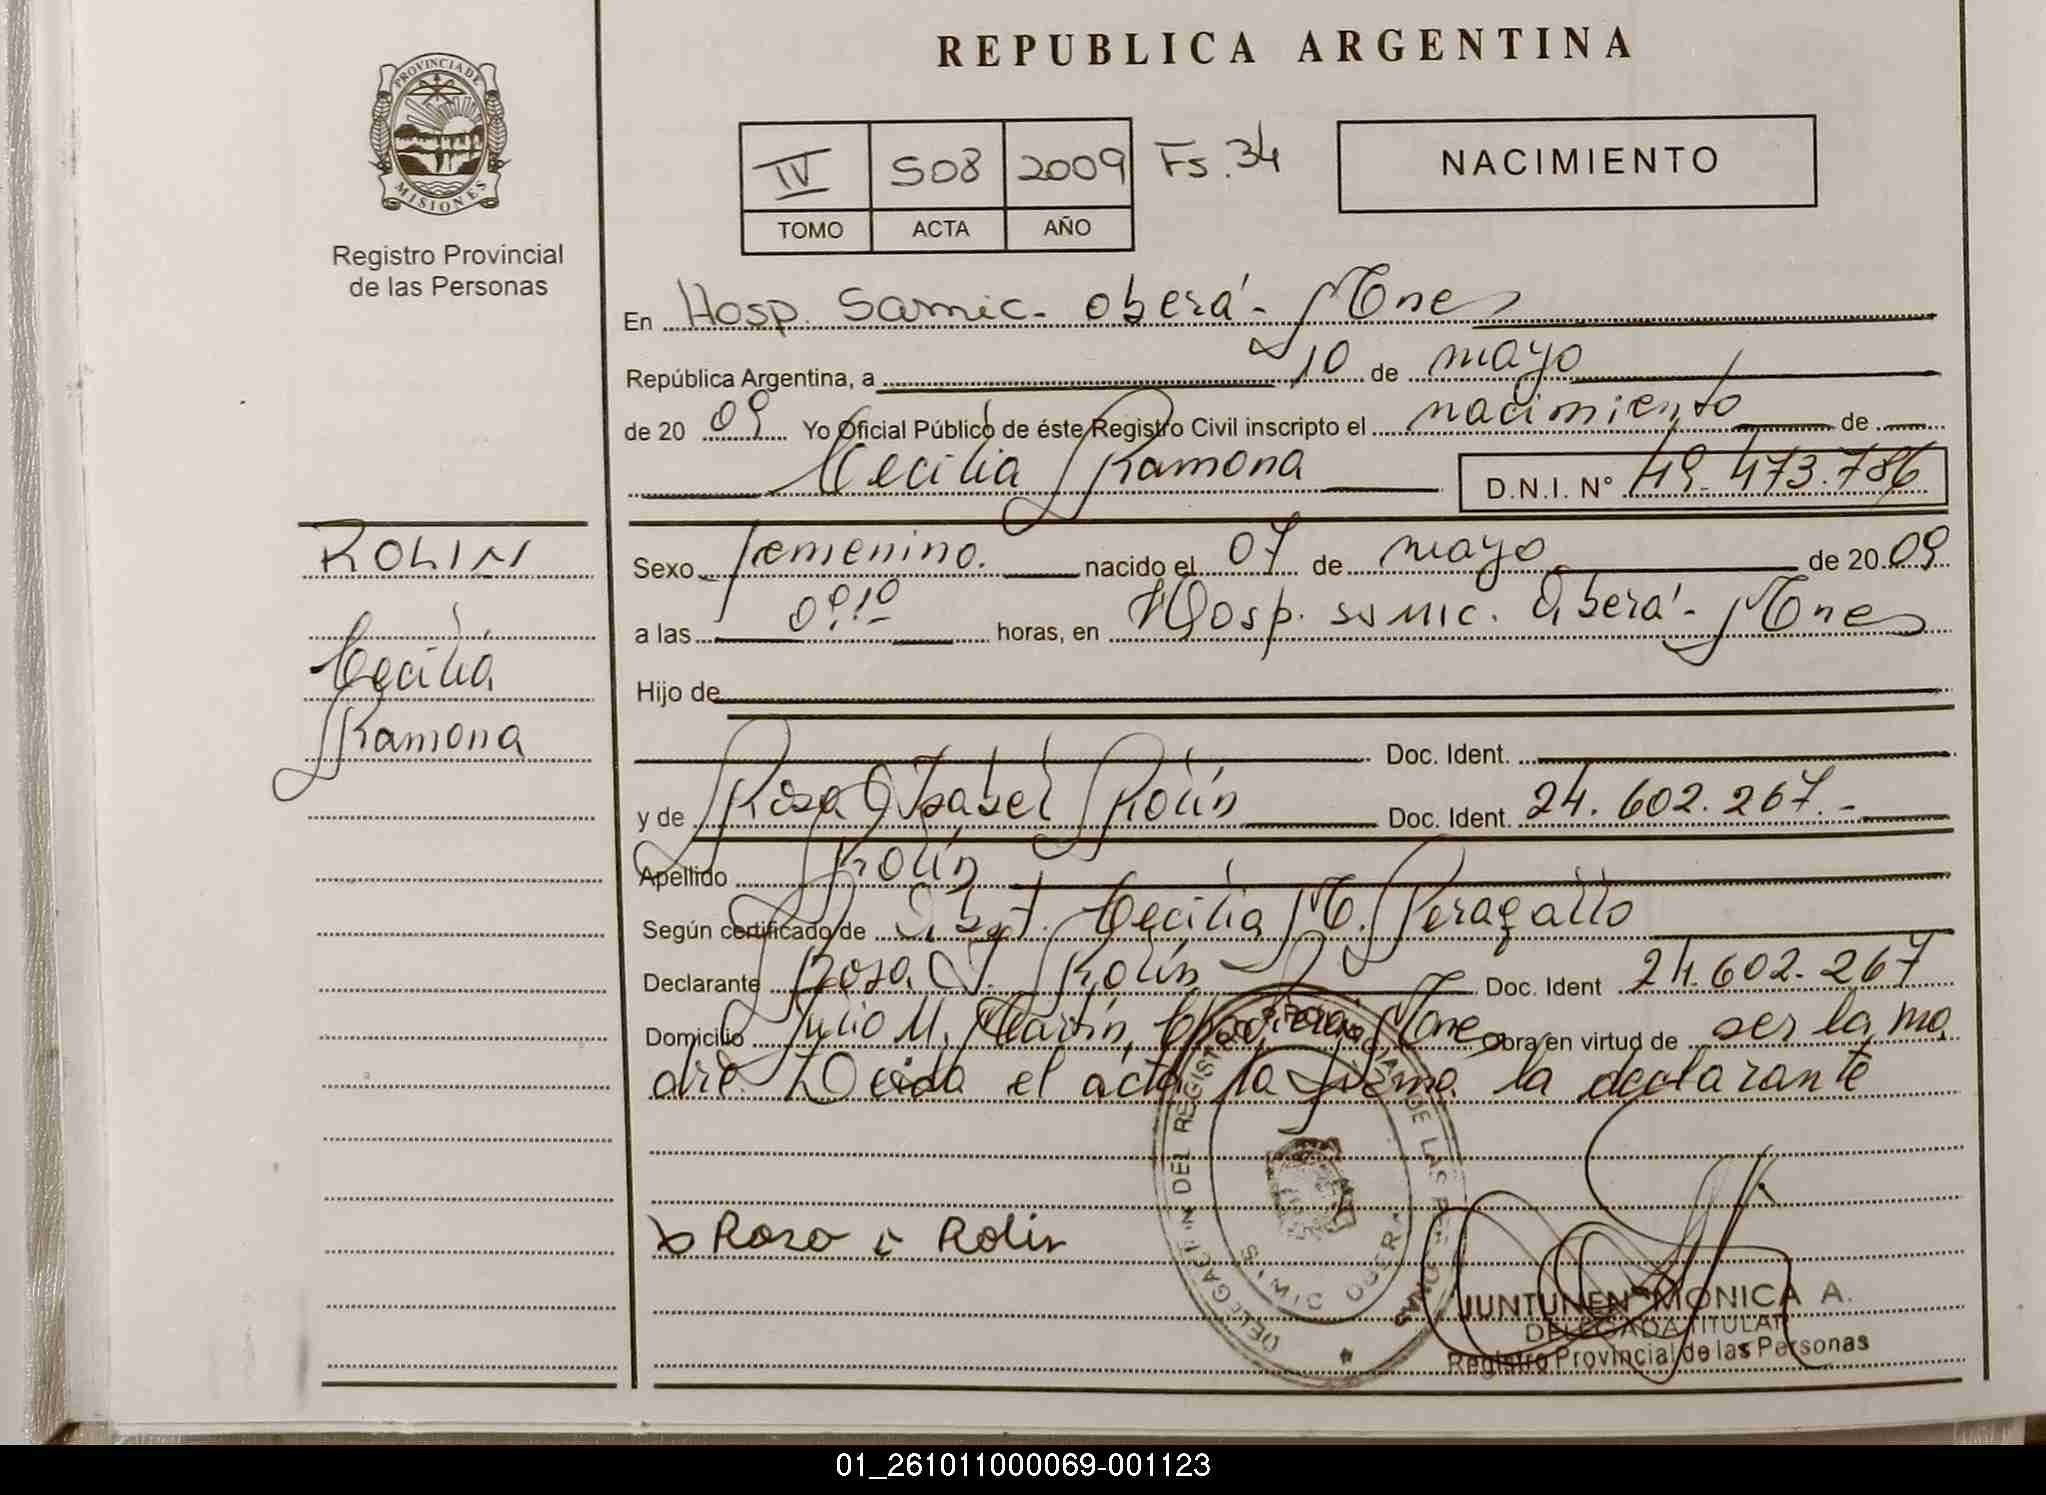 REPUBLICA ARGENTINA
PROVINCIA DE
MISIONES
Registro Provincial
de las Personas
IV 508 2009 Fs. 34
TOMO ACTA AÑO
NACIMIENTO
En Hosp. Samic - oberá - Mnes
República Argentina, a 10 de mayo
de 20 09 Yo Oficial Público de éste Registro Civil inscripto el nacimiento de
Cecilia Ramona D.N.I. N° 49.473.786
ROLIN
Cecilia
Ramona
Sexo femenino. nacido el 07 de mayo de 20 09
a las horas, en Hosp. samic. Oberá - Mnes
Hijo de
Doc. Ident.
y de Rosa Isabel Rolín Doc. Ident. 24.602.267.-
Apellido Rolín
Según certificado de Obst. Cecilia M. Peragallo
Declarante Rosa I. Rolín Doc. Ident 24.602.267
Domicilio Julio U. Martín, Mnes Obra en virtud de ser la ma
dre Leida el acta la firma la declarante
Rosa i Rolin
DELEGACION DEL REGISTRO PROVINCIAL DE LAS PERSONAS
JUNTUNEN MONICA A.
DELEGADA TITULAR
Registro Provincial de las Personas
01_261011000069-001123